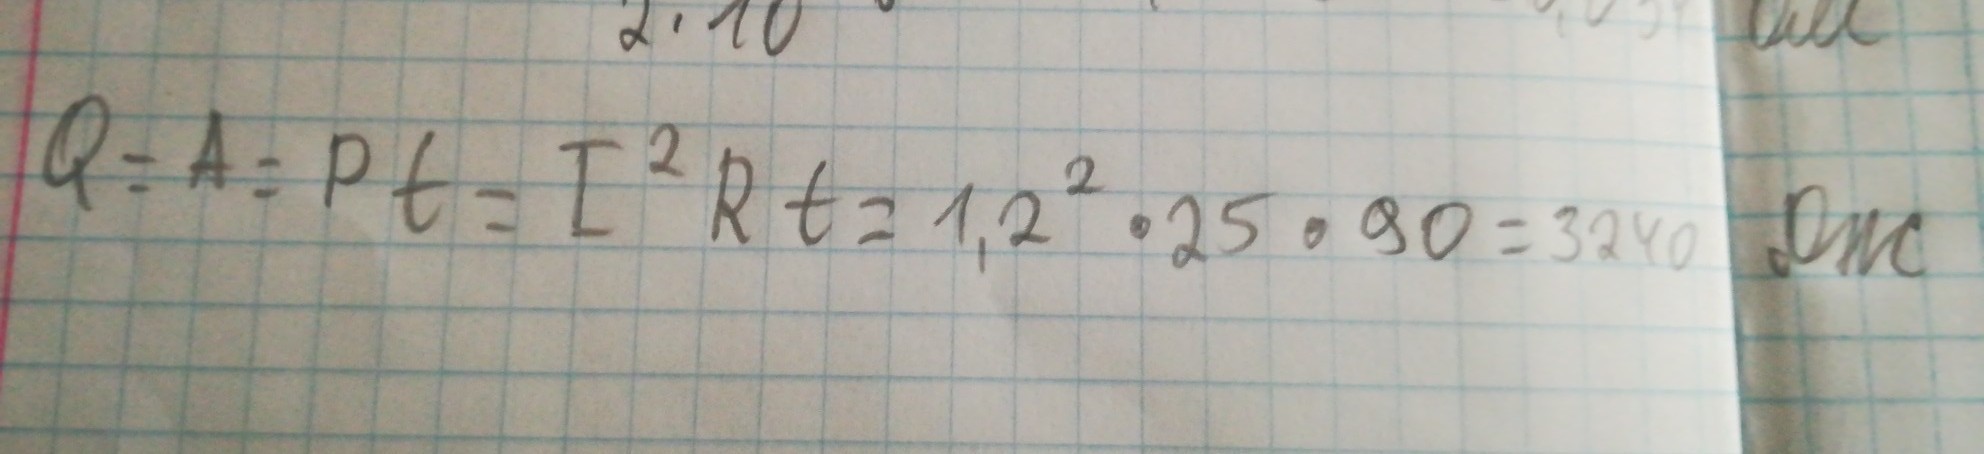 2·10
Q=A=Pt=I²Rt=1,2²·25·90=3240 Дж